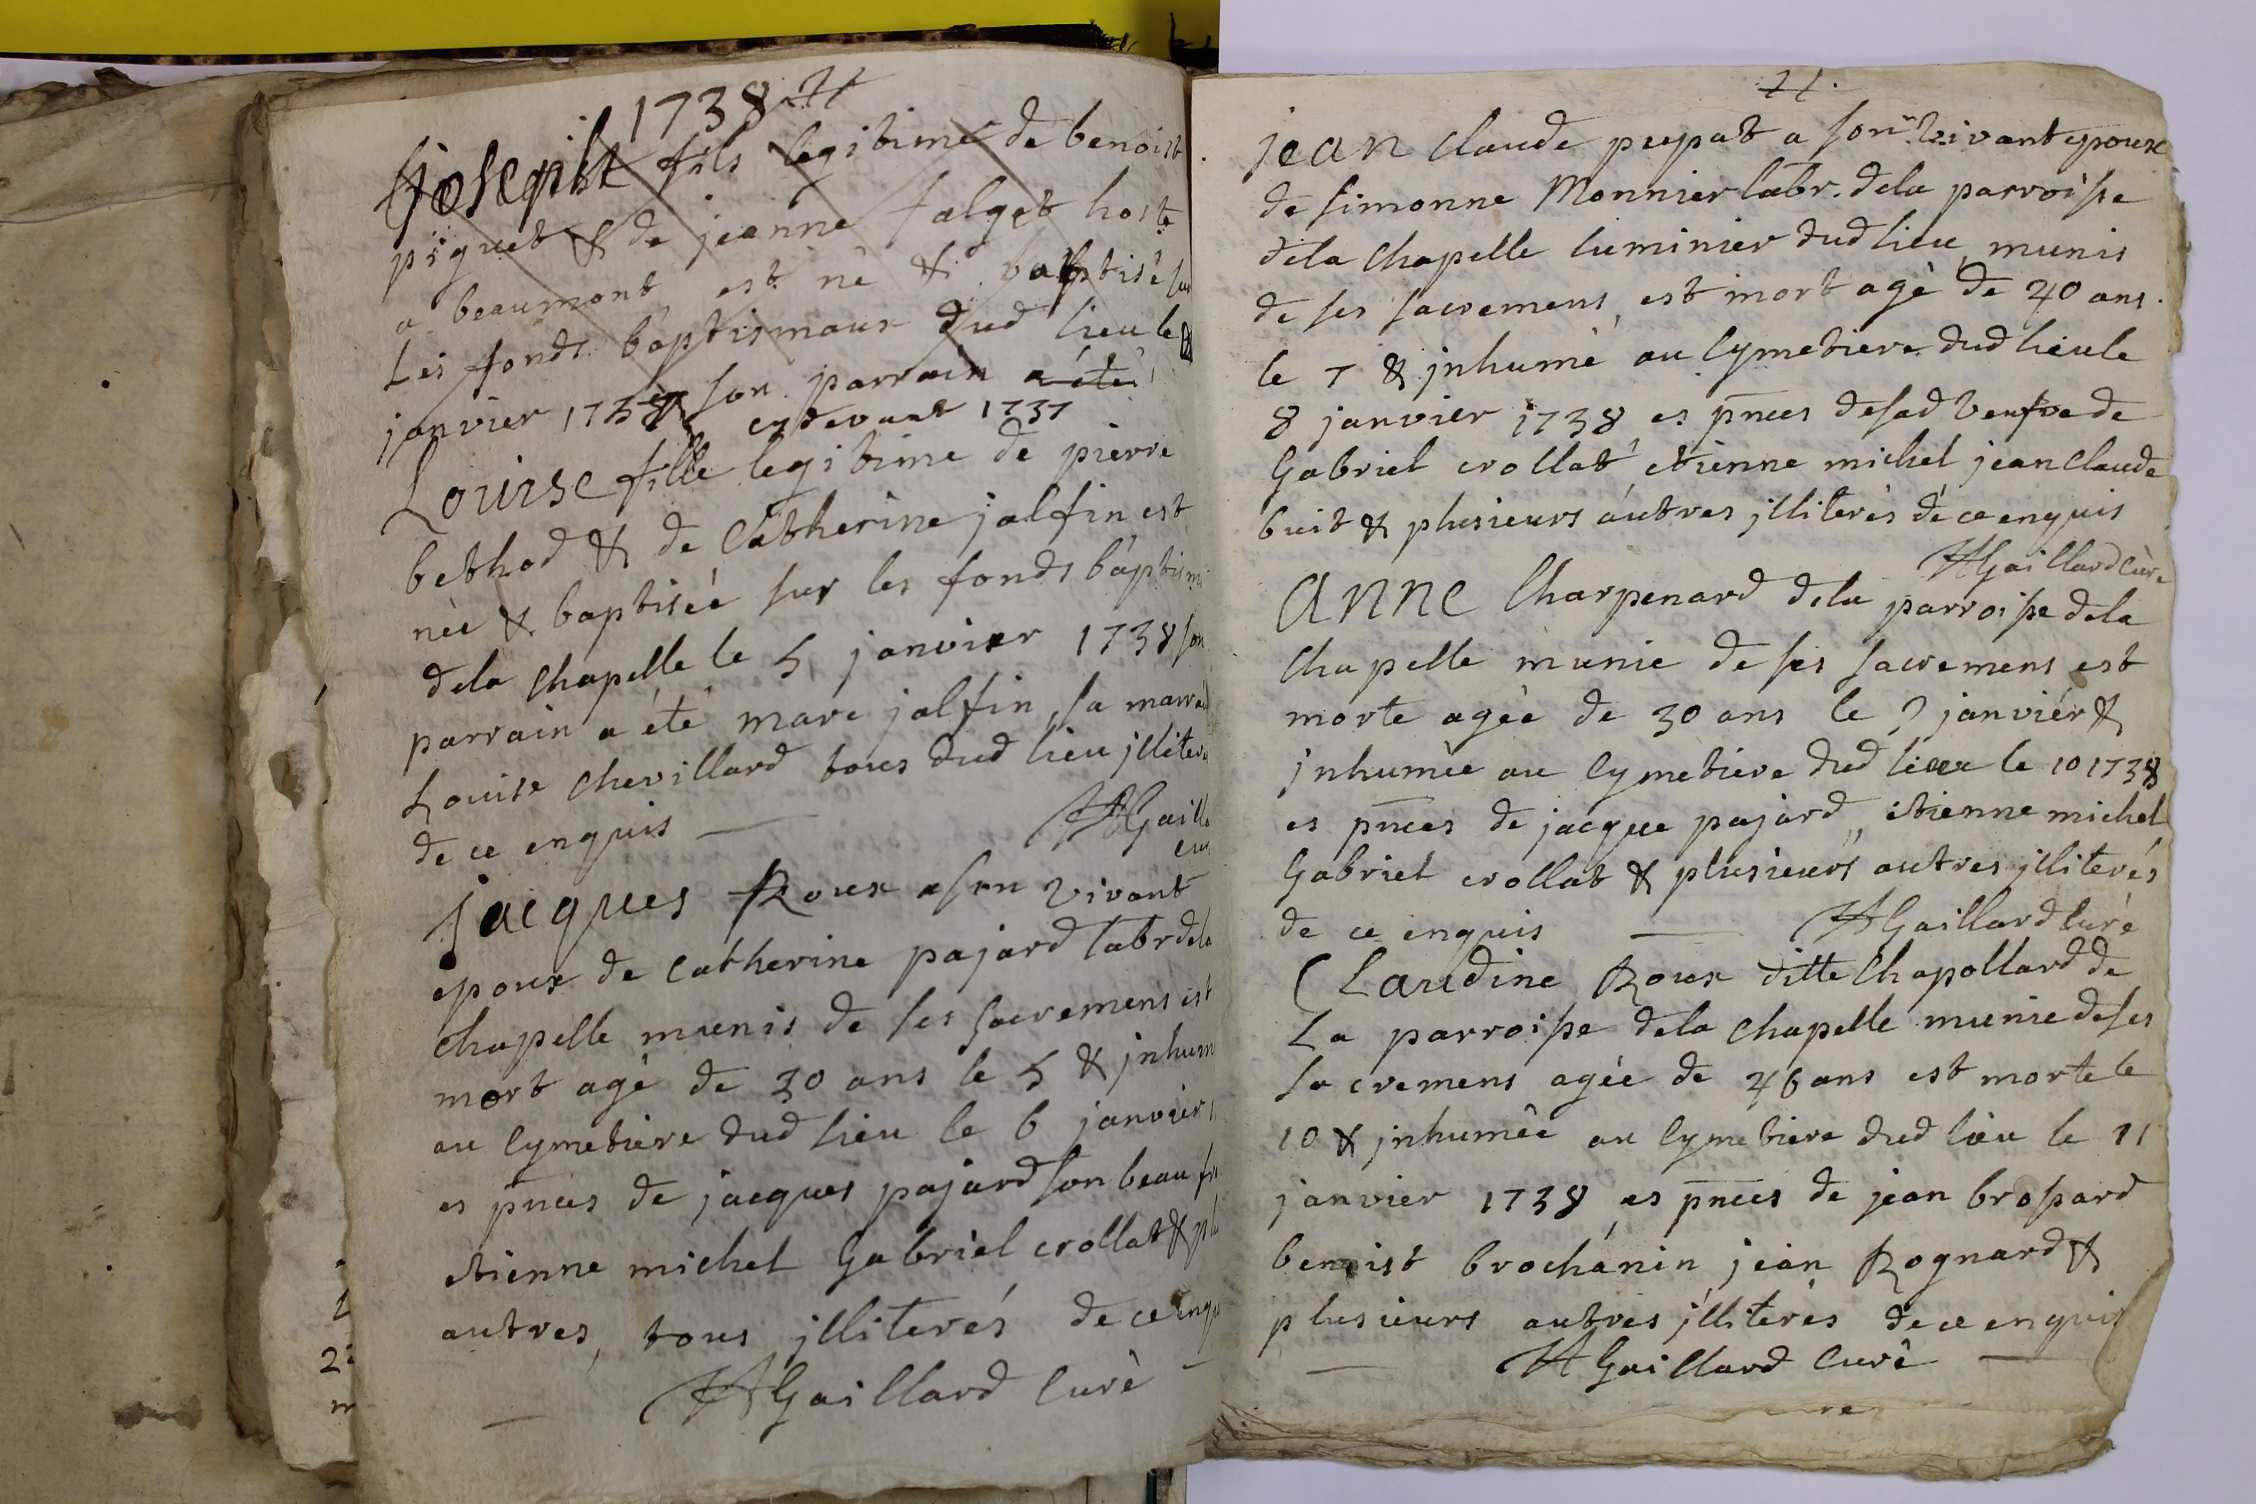 1738
joseph fils legitime de benoist
piguet & de jeanne falget hoste
a beaumont est né & baptisé sur
Les fonds baptismaux dud lieu le
janvier 1738 son parrain a été
cydevant 1737
Louise fille legitime de pierre
bethod & de Catherine jalfin est
née & baptisée sur les fonds baptism
dela chapelle le 5 janvier 1738 son
parrain a été marc jalfin, sa marrai
Louise chevillard tous dud lieu jlliteré
de ce enquis
Gailla
cur
jacques Roux a son vivant
epoux de catherine pajard labr dela
chapelle munis de ses sacremens est
mort agé de 30 ans le 5 & jnhum
au cymetiere dud lieu le 6 janvier 1
es pnces de jacques pajard son beau fr
etienne michel Gabriel crollat & plu
autres, tous jlliterés de ce enqu
Gaillard curé
jean claude pupat a son vivant epoux
de simonne Monnier labr. dela parroisse
dela chapelle luminier dud lieu, munis
de ses sacremens, est mort agé de 40 ans
le 7 & jnhumé au cymetiere dud lieu le
8 janvier 1738 es pnces de sad veufve de
Gabriel crollat, etienne michel jean claude
buit & plusieurs autres jlliterés de ce enquis
Gaillard curé
anne charpenard dela parroisse dela
chapelle munie de ses sacremens est
morte agée de 30 ans le 9 janvier &
jnhumée au cymetiere dud lieu le 10 1738
es pnces de jacque pajard, etienne michel
Gabriel crollat & plusieurs autres jlliterés
de ce enquis Gaillard curé
Claudine Roux ditte chapollard de
La parroisse dela chapelle munie de ses
sacremens agée de 46 ans est morte le
10 & jnhumée au cymetiere dud lieu le 11
janvier 1738 es pnces de jean brossard
benoist brochanin jean Rognard &
plusieurs autres jlliterés de ce enquis
Gaillard curé